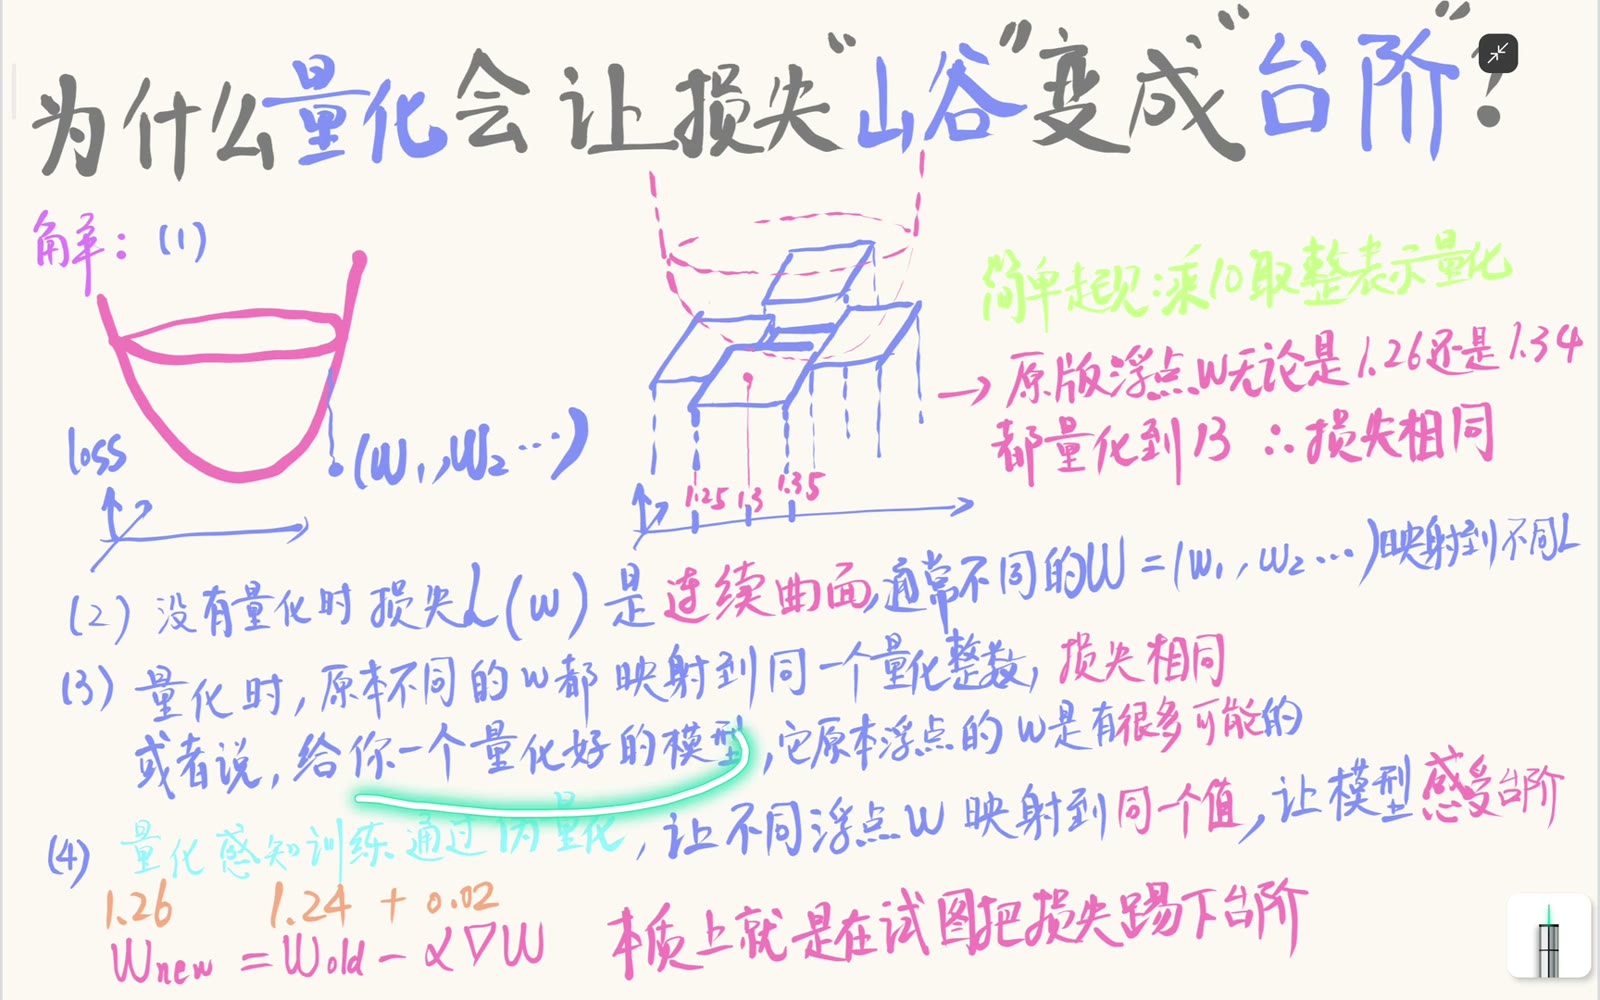 为什么量化会让损失“山谷”变成“台阶”？
解：(1)
loss
(W₁,W₂…)
1.25 1.3 1.35
简单起见：乘10取整表示量化
→ 原版浮点W无论是1.26还是1.34
都量化到13 ∴损失相同
(2) 没有量化时 损失L(w) 是连续曲面,通常不同的W=(w₁,w₂…)映射到不同L
(3) 量化时,原本不同的w都映射到同一个量化整数,损失相同
或者说,给你一个量化好的模型,它原本浮点的w是有很多可能的
(4) 量化感知训练通过伪量化,让不同浮点W映射到同一个值,让模型感受台阶
1.26 1.24 + 0.02
Wnew = Wold - α∇W 本质上就是在试图把损失踢下台阶